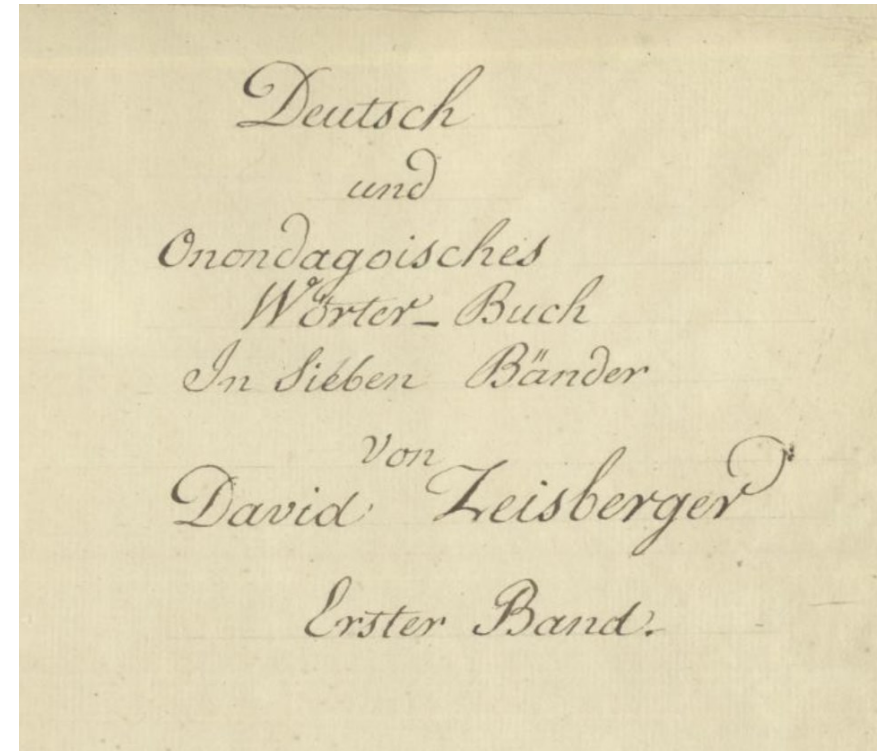 Deutsch
und
Onondagoisches
Wörter-Buch
In Sieben Bänder
von
David Zeisberger
Erster Band.